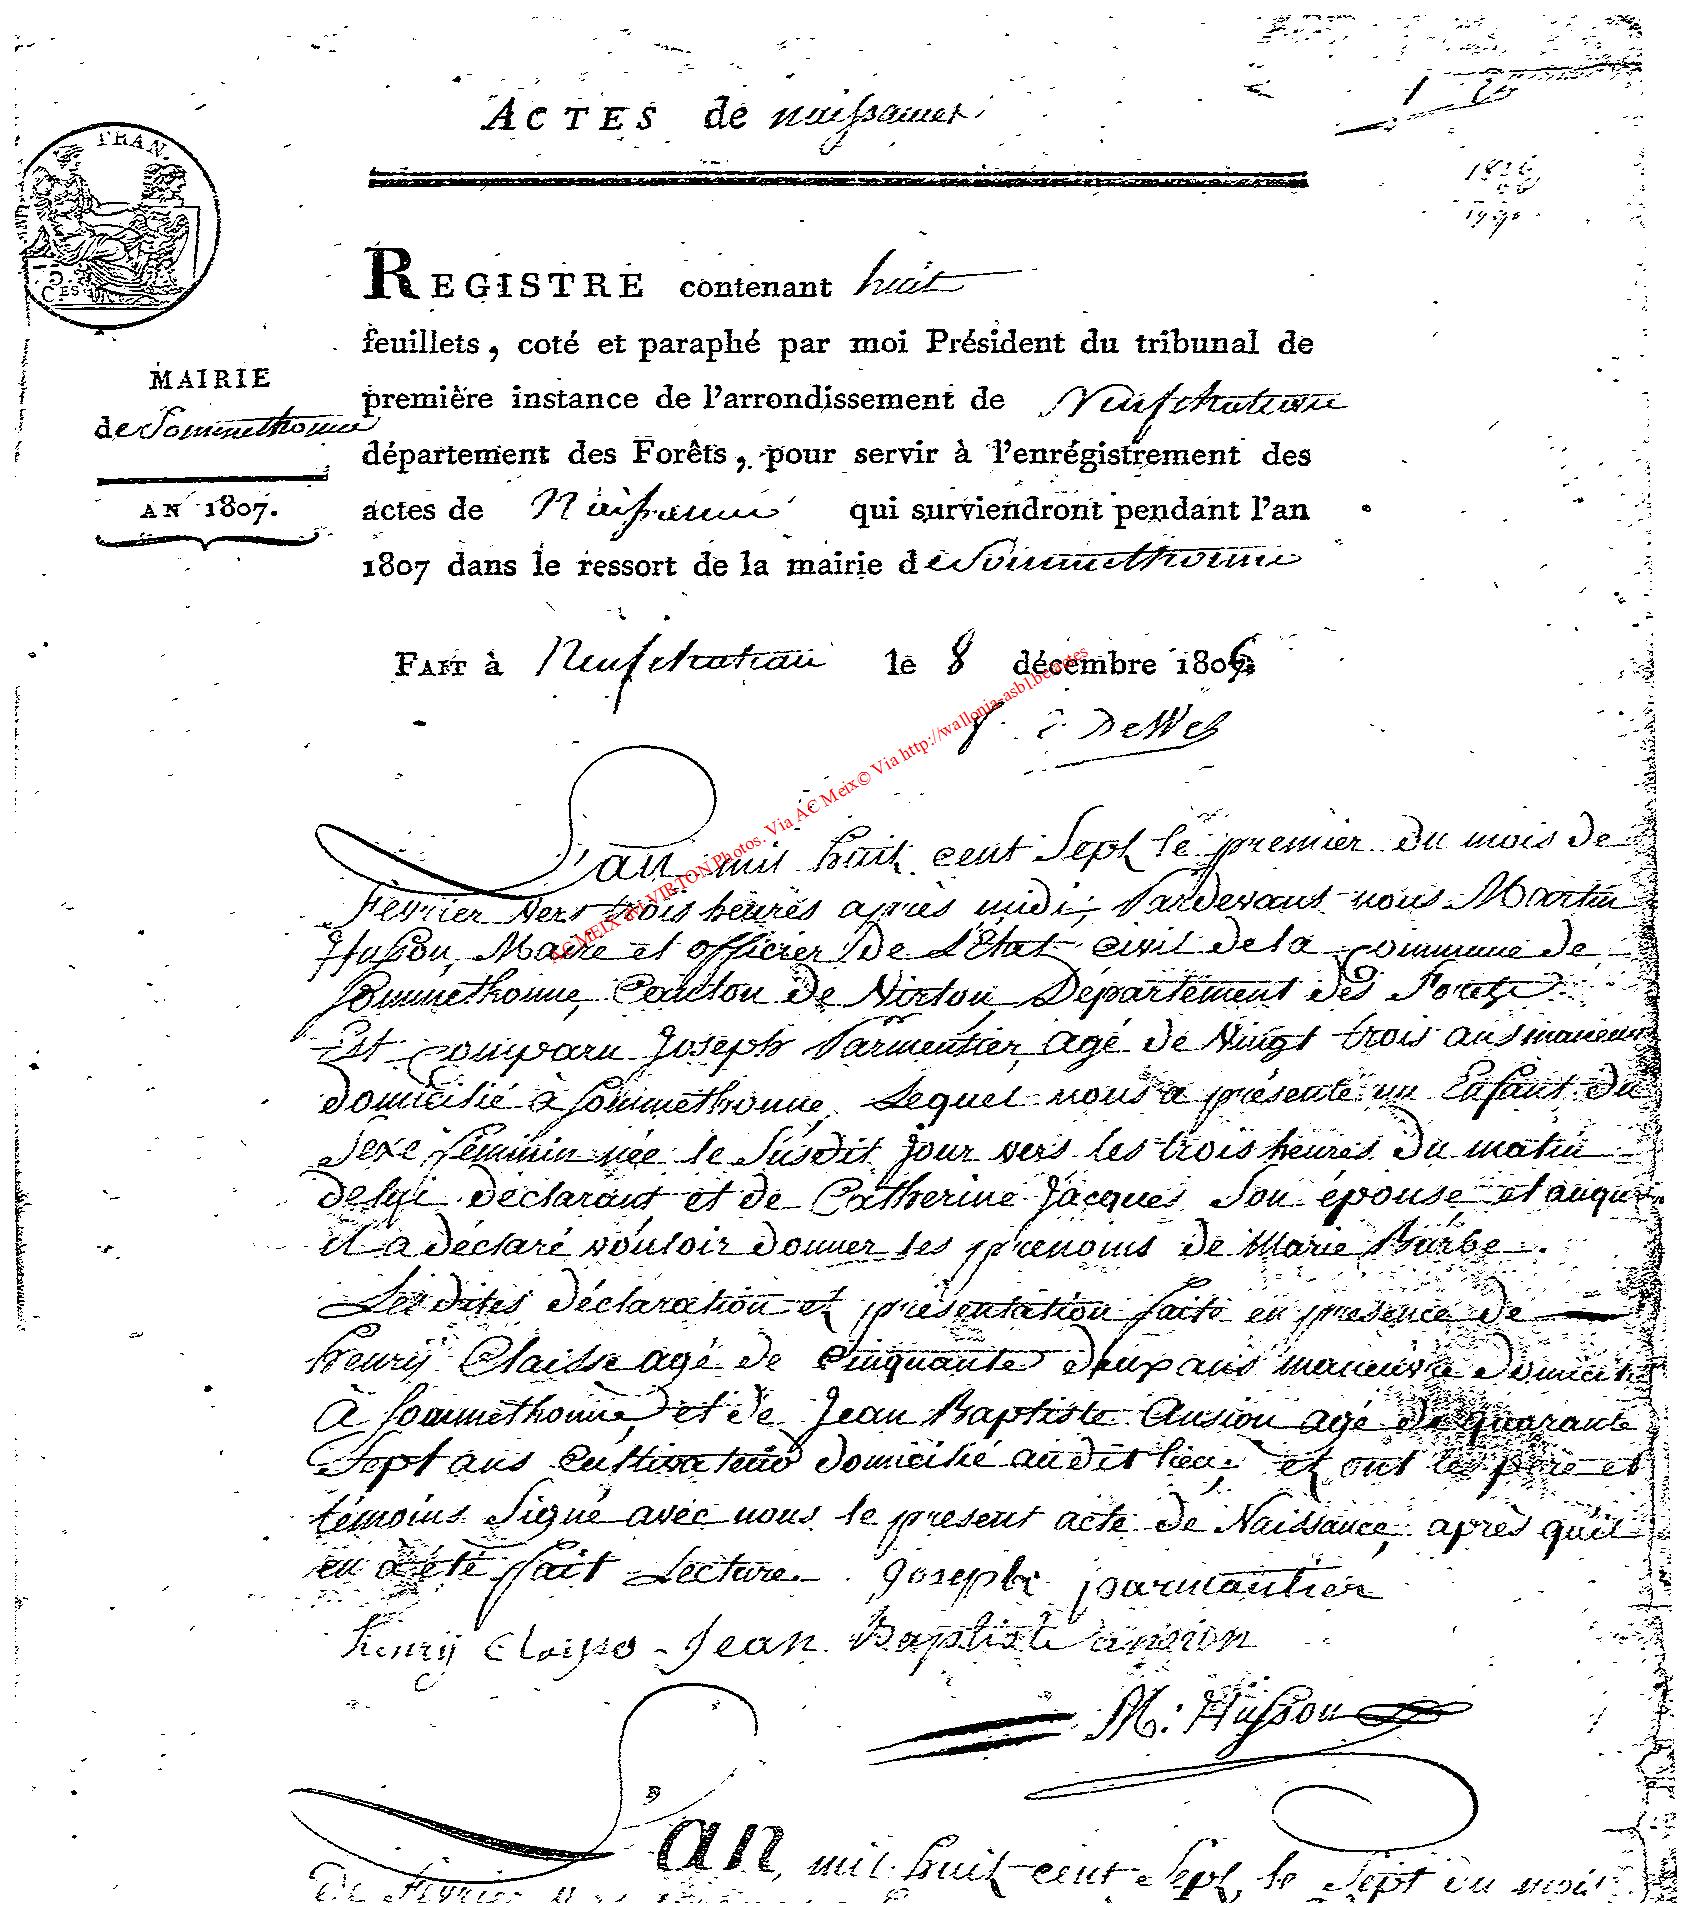 ACTES de naissances
FRAN.
5
CES
1826
REGISTRE contenant huit
feuillets, coté et paraphé par moi Président du tribunal de
MAIRIE
première instance de l'arrondissement de Neufchateau
de Sommethonne
département des Forêts, pour servir à l'enrégistrement des
AN 1807.
actes de Naissance qui surviendront pendant l'an
1807 dans le ressort de la mairie de Sommethonne
FAIT à Neufchateau le 8 décembre 1806
AC MEIX dct VIRTON Photos. Via AC Meix© Via http://wallonia-asbl.be/actes
L'an mil huit cent Sept le premier du mois de
Février vers trois heures après midi, Pardevant nous Martin
Husson, Maire et officier de L'Etat civil de la Commune de
Sommethonne, Canton de Virton Département des Forets
Est Comparu Joseph Parmentier, agé de Vingt trois ans manoeuvre
domicilié à Sommethonne, Lequel nous a présenté un Enfant du
Sexe féminin née le Susdit jour vers les trois heures du matin
de lui déclarant et de Catherine Jacques Son épouse, et auquel
il a déclaré vouloir donner les prenoms de Marie Barbe.
Lesdites déclaration et présentation faite en presence de
henrÿ Claisse agé de Cinquante deux ans manoeuvre domicilié
à Sommethonne, et de Jean Baptiste Ansion agé de quarante
Sept ans Cultivateur domicilié audit lieu, et ont les père et
témoins Signé avec nous le present acte de Naissance, après qu'il
en à été fait Lecture. Josephe parmantier
henrÿ Claisse Jean Baptiste ansion
M: Husson
L'an, mil huit cent Sept, le Sept du mois
de Février